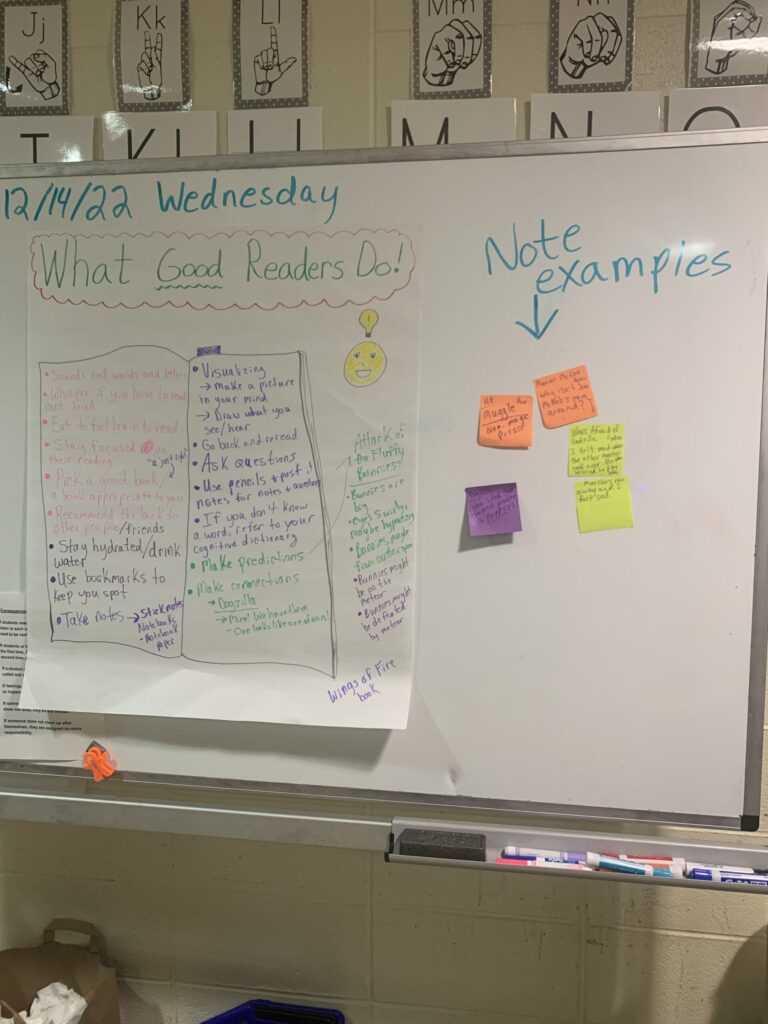 Jj
Kk
Ll
Mm
Nn
M
N
O
12/14/22 Wednesday
What Good Readers Do!
• Sounds out words and letters
• Whisper if you have to read
out loud
• Eat to fuel brain to read
• Stay focused on
their reading
• Pick a good book/
a book appropriate to
• Recommend the book to
other people/friends
• Stay hydrated/drink
water
• Use bookmarks to
keep you spot
• Take notes → Stick notes
Notebooks
• Notebook
paper
• Visualizing
→ Make a picture
in your mind
→ Draw what you
see/hear
• Go back and reread
• Ask questions
• Use pencils & post it
notes for notes & questions
• If you don't know
a word, refer to your
cognitive dictionary
• Make predictions
• Make connections
→ Dogzilla
→ Mice! We have them
- One looks like one of ours!
Attack of
the Fluffy
Bunnies!
• Bunnies are
big
• eyes swirly,
maybe hypnotizing
• Bunnies maybe
from outer space
• Bunnies might
be on the
meteor
• Bunnies might
be defeated
by meteor
Wings of Fire
book
Note
examples
Muggle
Non-magic
person
why isn't
around?
Who's Afraid of
Godzilla
I felt
the other monsters
away and I
felt sad.
If someone does not clean up after
themselves, they are assigned an extra
responsibility.